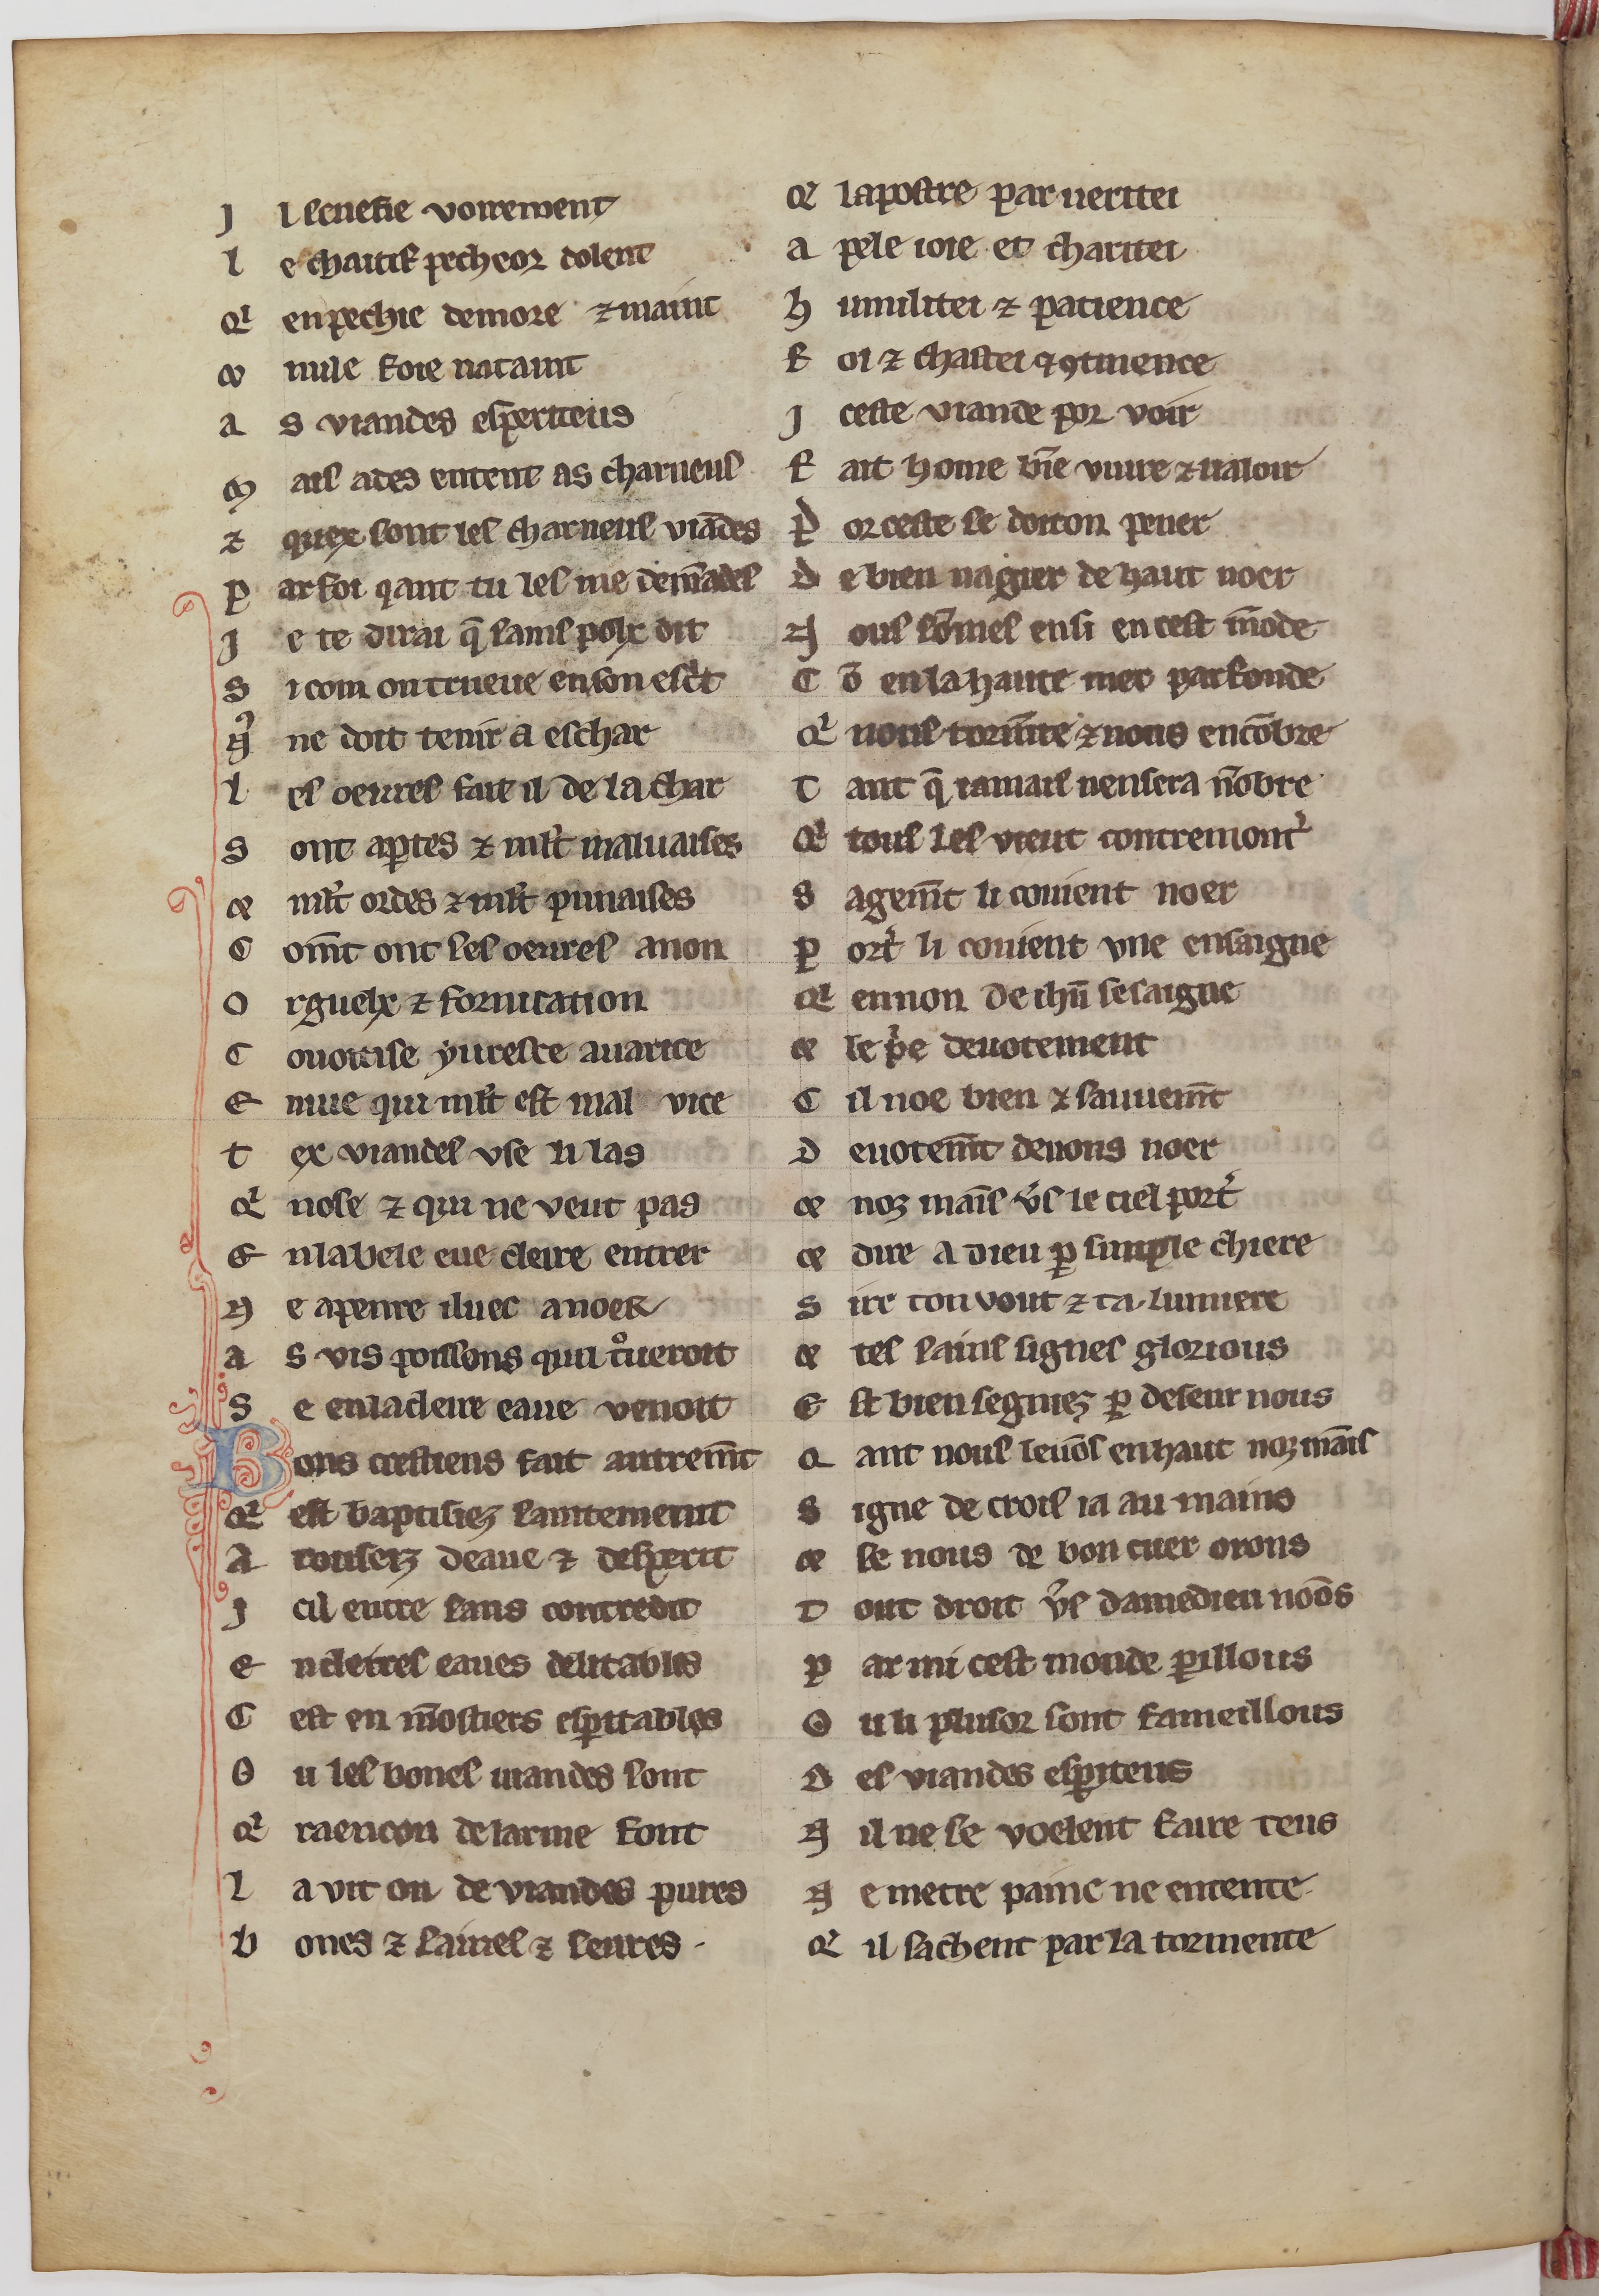 J l senefie voirement
l e chaitif pecheor dolent
Qͥ en pechie demore ⁊ maint
⁊ nule foie nataint
a s viandes esperiteus
m ais ades entent as charneus
⁊ quex sont les charneus viādes
P ar foi qant tu les me demādes
J e te dirai q̄ sains polx dit
S i com on trueue en son esc͛t
Qͥ ne doit tenir a eschar
l es oeures fait il de la char
S ont aꝑtes ⁊ ml̄t maluaises
⁊ ml̄t ordes ⁊ ml̄t punaises
C om̄t ont les oeures anon
O rguelx ⁊ fornication
C ouoitise yuresce auarice
E nuie qui ml̄t est mal vice
t ex viandes vse li las
Qͥ nose ⁊ qui ne veut pas
E n la bele eue cleire entrer
N e apenre iluec a noer
a s vis poissons quil tͦueroit
S e en la cleire eaue venoit
Bons crestiens fait autrem̄t
Qͥ est baptisiez saintement
A rousez deaue ⁊ desperit
J cil entre sans contredit
E n cleires eaues delitables
C est en mōstiers esꝑitables
O u les bones uiandes sont
Qͥ raencon de larme font
l a vit on de viandes pures
b ones ⁊ saines ⁊ seures
Qͥ lapostre par ueritei
a pele ioie et charitei
h umilitei ⁊ patience
F oi ⁊ chastei ⁊ ꝯtinence
J ceste viande por voir
F ait home bīe viure ⁊ ualoir
P or ceste se doit on pener
D e bien nagier de haut noer
N ous sōmes ensi en cest mōde
C ō en la haute mer parfonde
Qͥ nous tormēte ⁊ nous encōbre
T ant q̄ iamais nen sera nōbre
Qͥ tous les vieut contremont͛
S agem̄t li couient noer
P ort͛ li couient vne ensaigne
Qͥ en non de ihū se saigne
⁊ le p͛e deuotement
C il noe bien ⁊ sauuem̄t
D euotem̄t deuons noer
⁊ noz maīs v͛s le ciel port͛
⁊ dire a dieu ꝑ simple chiere
S ire ton vout ⁊ ta lumiere
⁊ tes sains signes glorious
E st bien segniez ꝑ deseur nous
Q ant nous leuōs en haut noz māis
S igne de crois ia au mains
⁊ se nous de bon cuer orons
T out droit v͛s damedieu noōs
P ar mi cest monde ꝑillous
O u li plusor sont fameillous
D es viandes esꝑiteus
N il ne se voelent faire teus
N e metre paine ne entente
Qͥ il sachent par la tormente